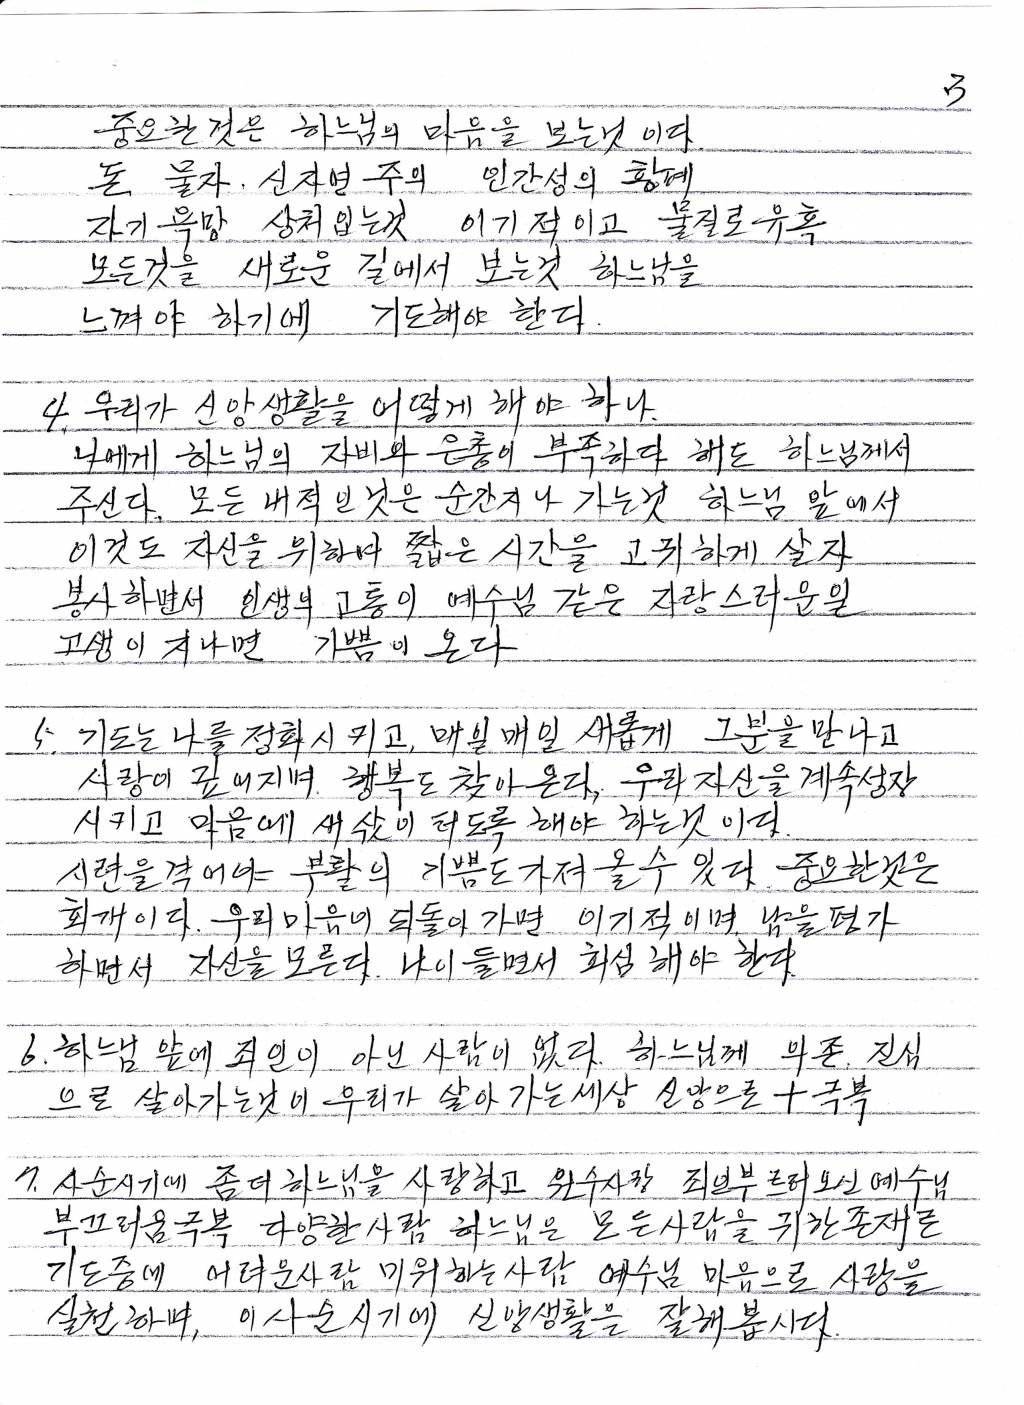 3
중요한것은 하느님의 마음을 보는것 이다.
돈, 물자. 신자변 주의 인간성의 황폐
자기 욕망 상처입는것 이기적이고 물질로유혹
모든것을 새로운 길에서 보는것 하느님을
느껴야 하기에 기도해야 한다.
4. 우리가 신앙생활을 어떻게 해야 하나.
나에게 하느님의 자비와 은총이 부족하다 해도 하느님께서
주신다. 모든 내적인것은 순간지나 가는것 하느님 앞에서
이것도 자신을 위하여 짧은 시간을 고귀하게 살자
봉사하면서 인생의 고통이 예수님 같은 자랑스러운일
고생이 지나면 기쁨이 온다
5. 기도는 나를 정화시키고, 매일매일 새롭게 그분을만나고
사랑이 깊어지며 행복도 찾아온다, 우리자신을계속성장
시키고 마음에 새싹이 터도록 해야 하는것 이다.
시련을격어야 부활의 기쁨도가져 올수 있다. 중요한것은
회개이다. 우리마음이 되돌아가면 이기적이며 남을평가
하면서 자신을 모른다. 나이들면서 회심해야 한다.
6. 하느님 앞에 죄인이 아닌 사람이 없다. 하느님께 의존, 진심
으로 살아가는것이 우리가 살아가는세상 신앙으로 + 극복
7. 사순시기에 좀더하느님을 사랑하고 원수사랑 죄인부르러오신예수님
부끄러움극복 다양한사람 하느님은 모든사람을 귀한존재로
기도중에 어려운사람 미워하는사람 예수님 마음으로 사랑을
실천하며, 이사순시기에 신앙생활을 잘해봅시다.